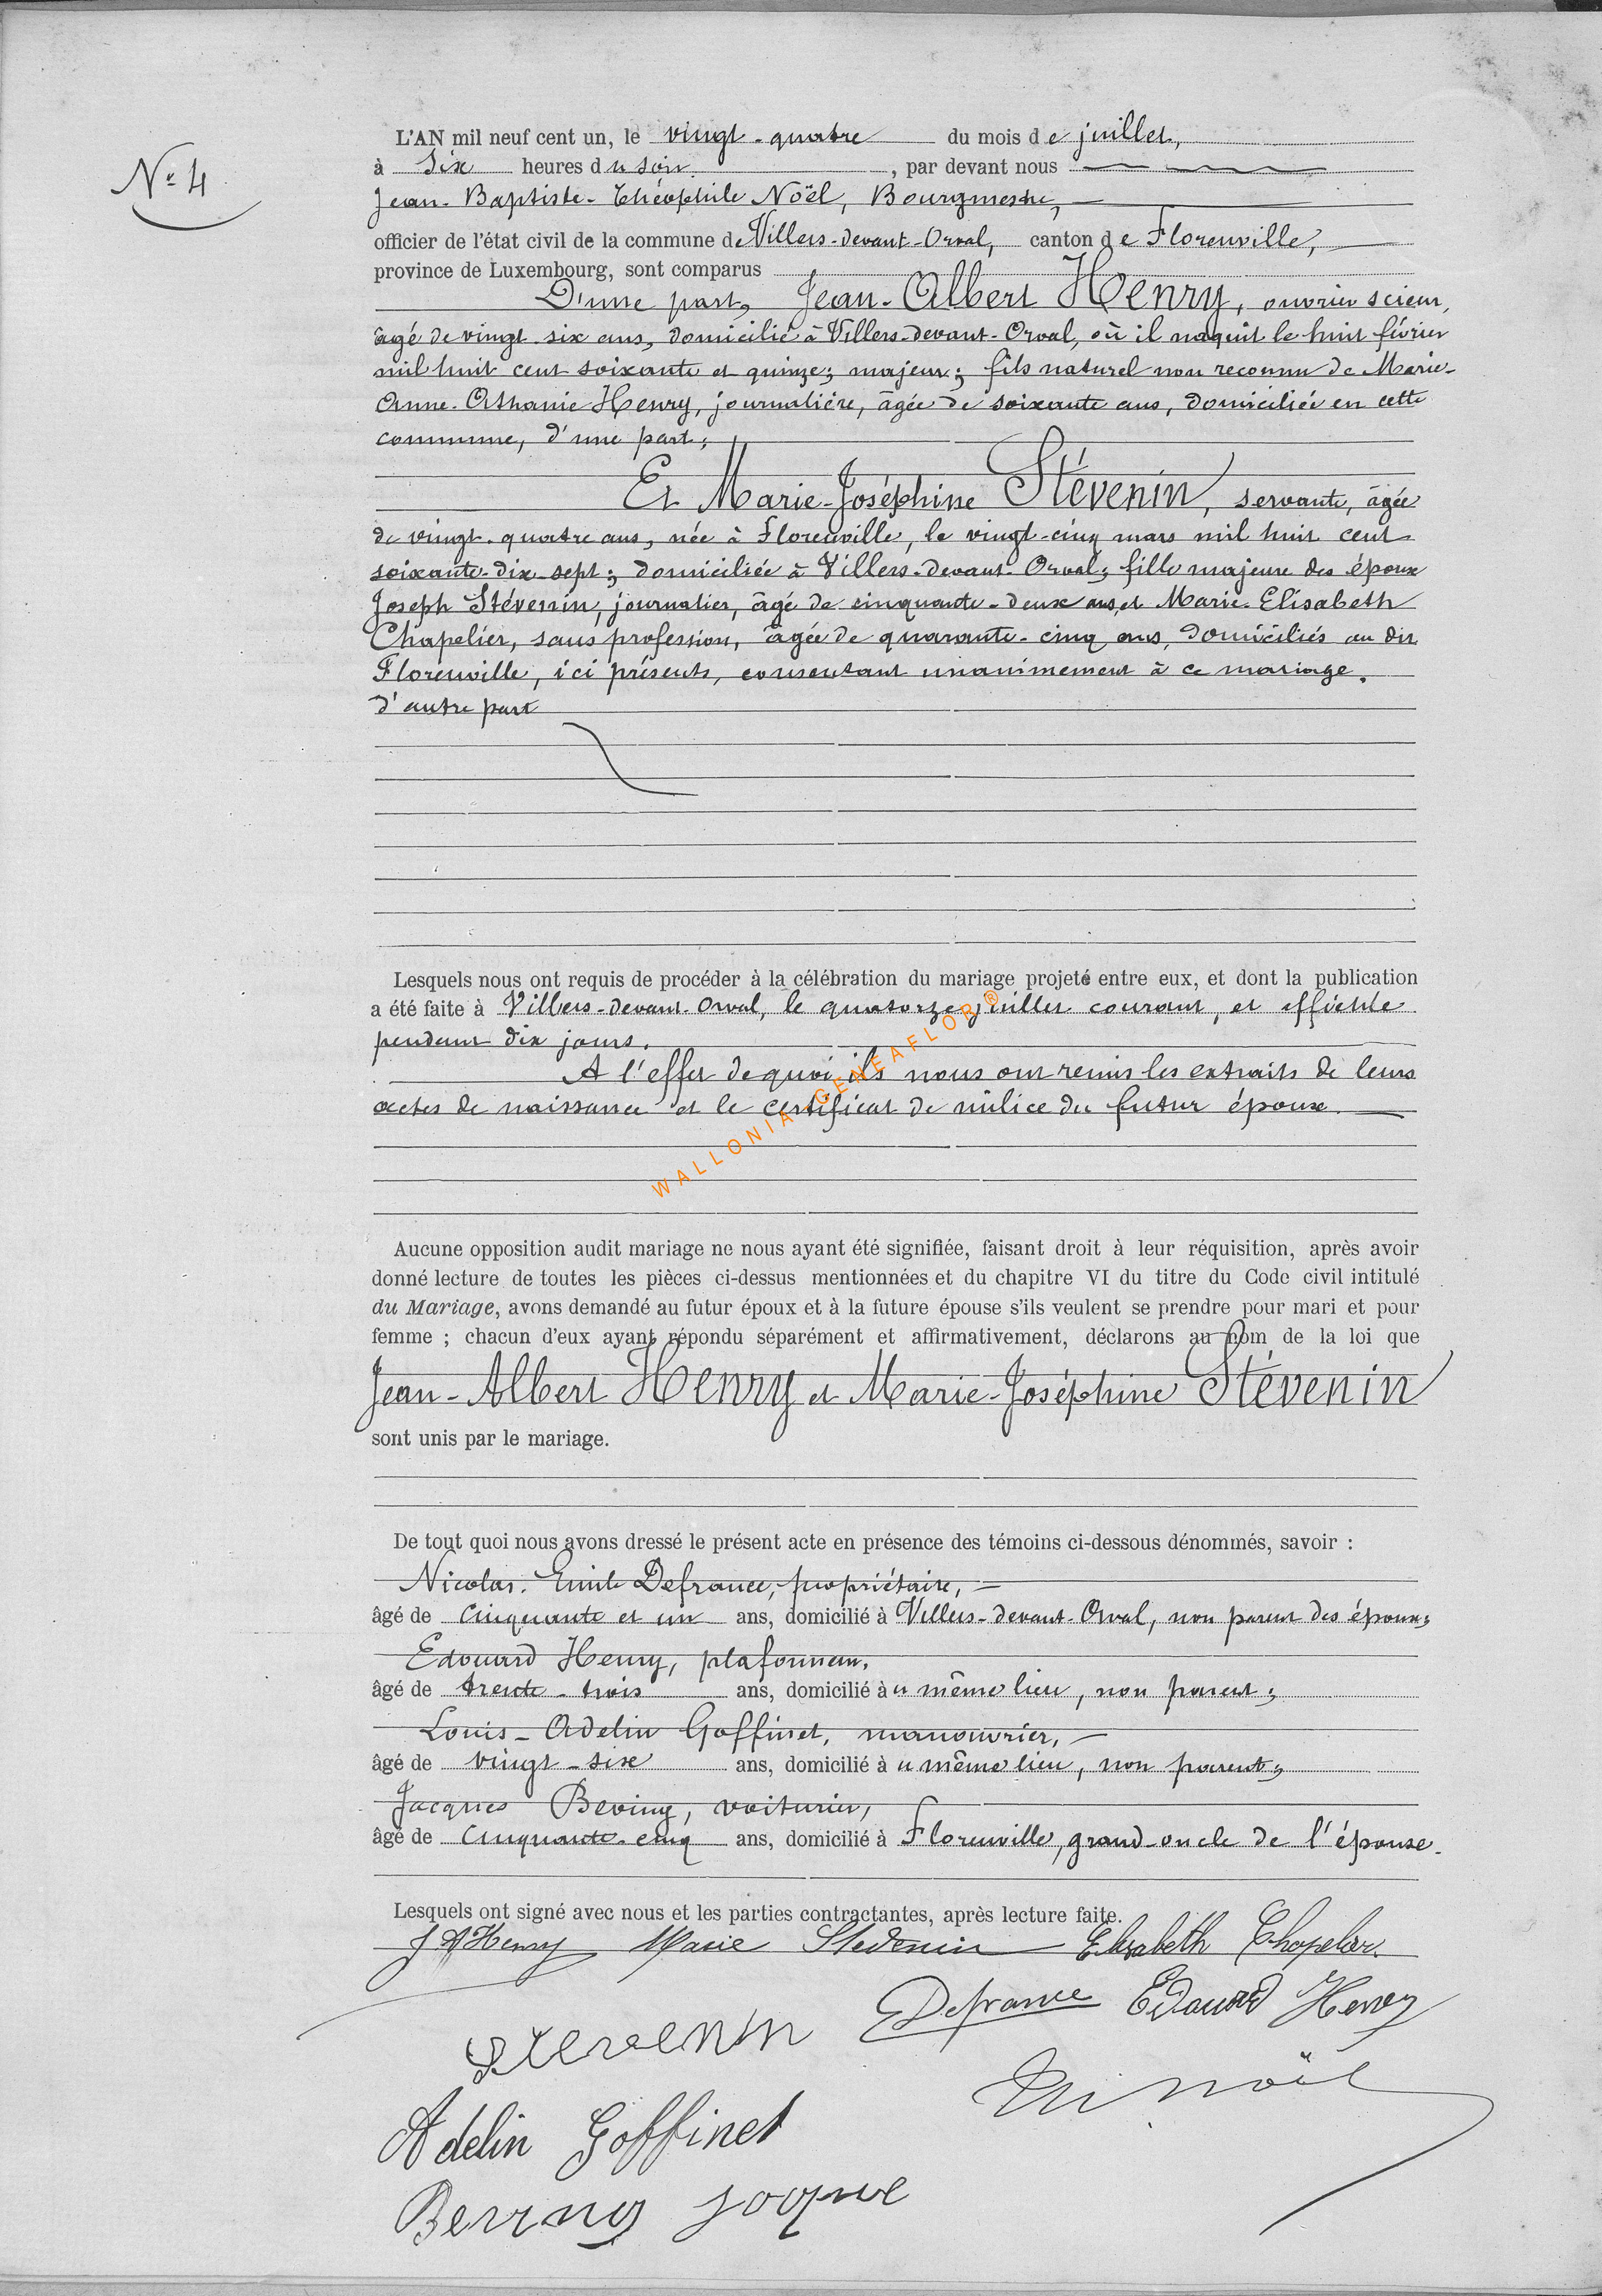 N° 4
L'AN mil neuf cent un, le vingt-quatre du mois de juillet,
à six heures du soir, par devant nous
Jean-Baptiste-Théophile Noël, Bourgmestre,
officier de l'état civil de la commune de Villers-devant-Orval, canton de Florenville,
province de Luxembourg, sont comparus
D'une part, Jean-Albert Henry, ouvrier scieur,
âgé de vingt-six ans, domicilié à Villers-devant-Orval, où il naquit le huit février
mil huit cent soixante et quinze; majeur; fils naturel non reconnu de Marie-
Anne-Athanie Henry, journalière, âgée de soixante ans, domiciliée en cette
commune, d'une part;
Et Marie-Joséphine Stévenin, servante, âgée
de vingt-quatre ans, née à Florenville, le vingt-cinq mars mil huit cent
soixante-dix-sept; domiciliée à Villers-devant-Orval; fille majeure des époux
Joseph Stévenin, journalier, âgé de cinquante-deux ans, et Marie-Elisabeth
Chapelier, sans profession, âgée de quarante-cinq ans, domiciliés au dit
Florenville, ici présents, consentant unanimement à ce mariage.
d'autre part
Lesquels nous ont requis de procéder à la célébration du mariage projeté entre eux, et dont la publication
a été faite à Villers-devant-Orval, le quatorze juillet courant, et affichée
pendant dix jours.
A l'effet de quoi ils nous ont remis les extraits de leurs
actes de naissance et le certificat de milice du futur époux.
WALLONIA-GENEAFLOR®
Aucune opposition audit mariage ne nous ayant été signifiée, faisant droit à leur réquisition, après avoir
donné lecture de toutes les pièces ci-dessus mentionnées et du chapitre VI du titre du Code civil intitulé
du Mariage, avons demandé au futur époux et à la future épouse s'ils veulent se prendre pour mari et pour
femme ; chacun d'eux ayant répondu séparément et affirmativement, déclarons au nom de la loi que
Jean-Albert Henry et Marie-Joséphine Stévenin
sont unis par le mariage.
De tout quoi nous avons dressé le présent acte en présence des témoins ci-dessous dénommés, savoir :
Nicolas-Emile Defrance, propriétaire,
âgé de cinquante et un ans, domicilié à Villers-devant-Orval, non parent des époux;
Edouard Henry, plafonneur,
âgé de trente-trois ans, domicilié au même lieu, non parent;
Louis-Adelin Goffinet, manouvrier,
âgé de vingt-six ans, domicilié au même lieu, non parent;
Jacques Beving, voiturier,
âgé de cinquante-cinq ans, domicilié à Florenville, grand-oncle de l'épouse.
Lesquels ont signé avec nous et les parties contractantes, après lecture faite.
J A Henry Marie Stevenin Elisabeth Chapelier
Stevenin EDefrance Edouard Henry
Noël
Adelin Goffinet
Beving Jaqve